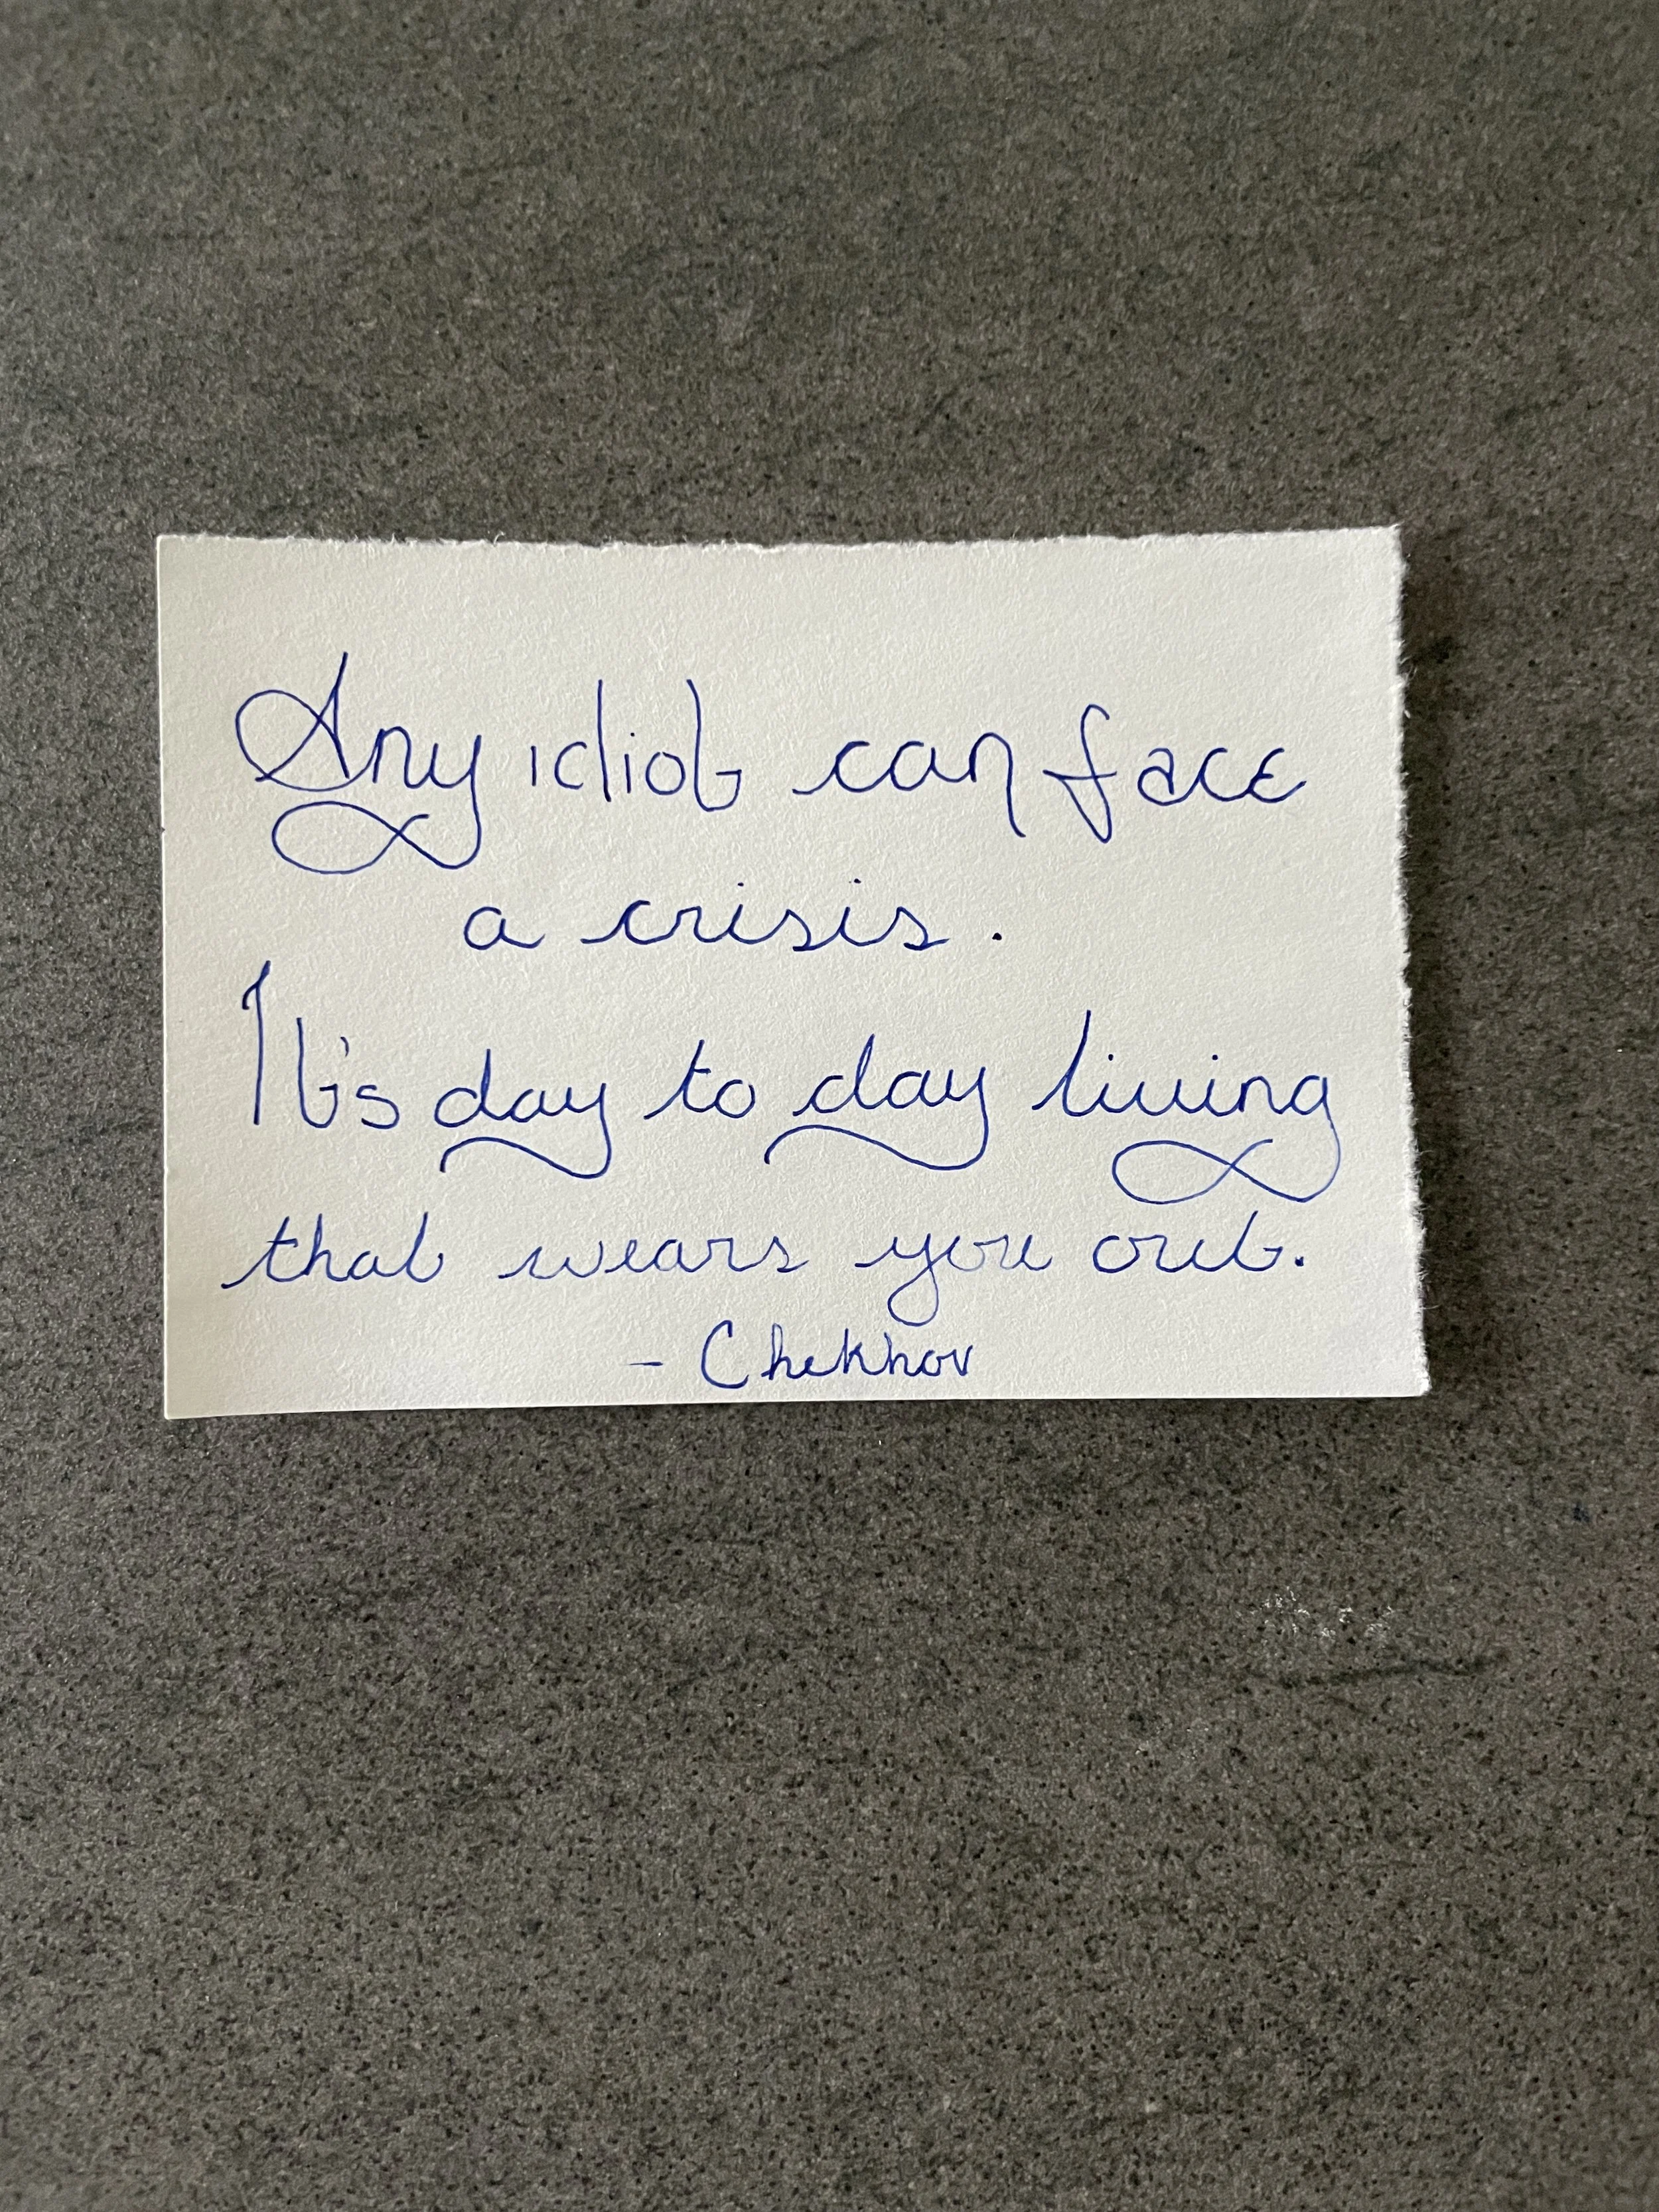 Any idiot can face
a crisis.
It's day to day living
that wears you out.
- Chekhov